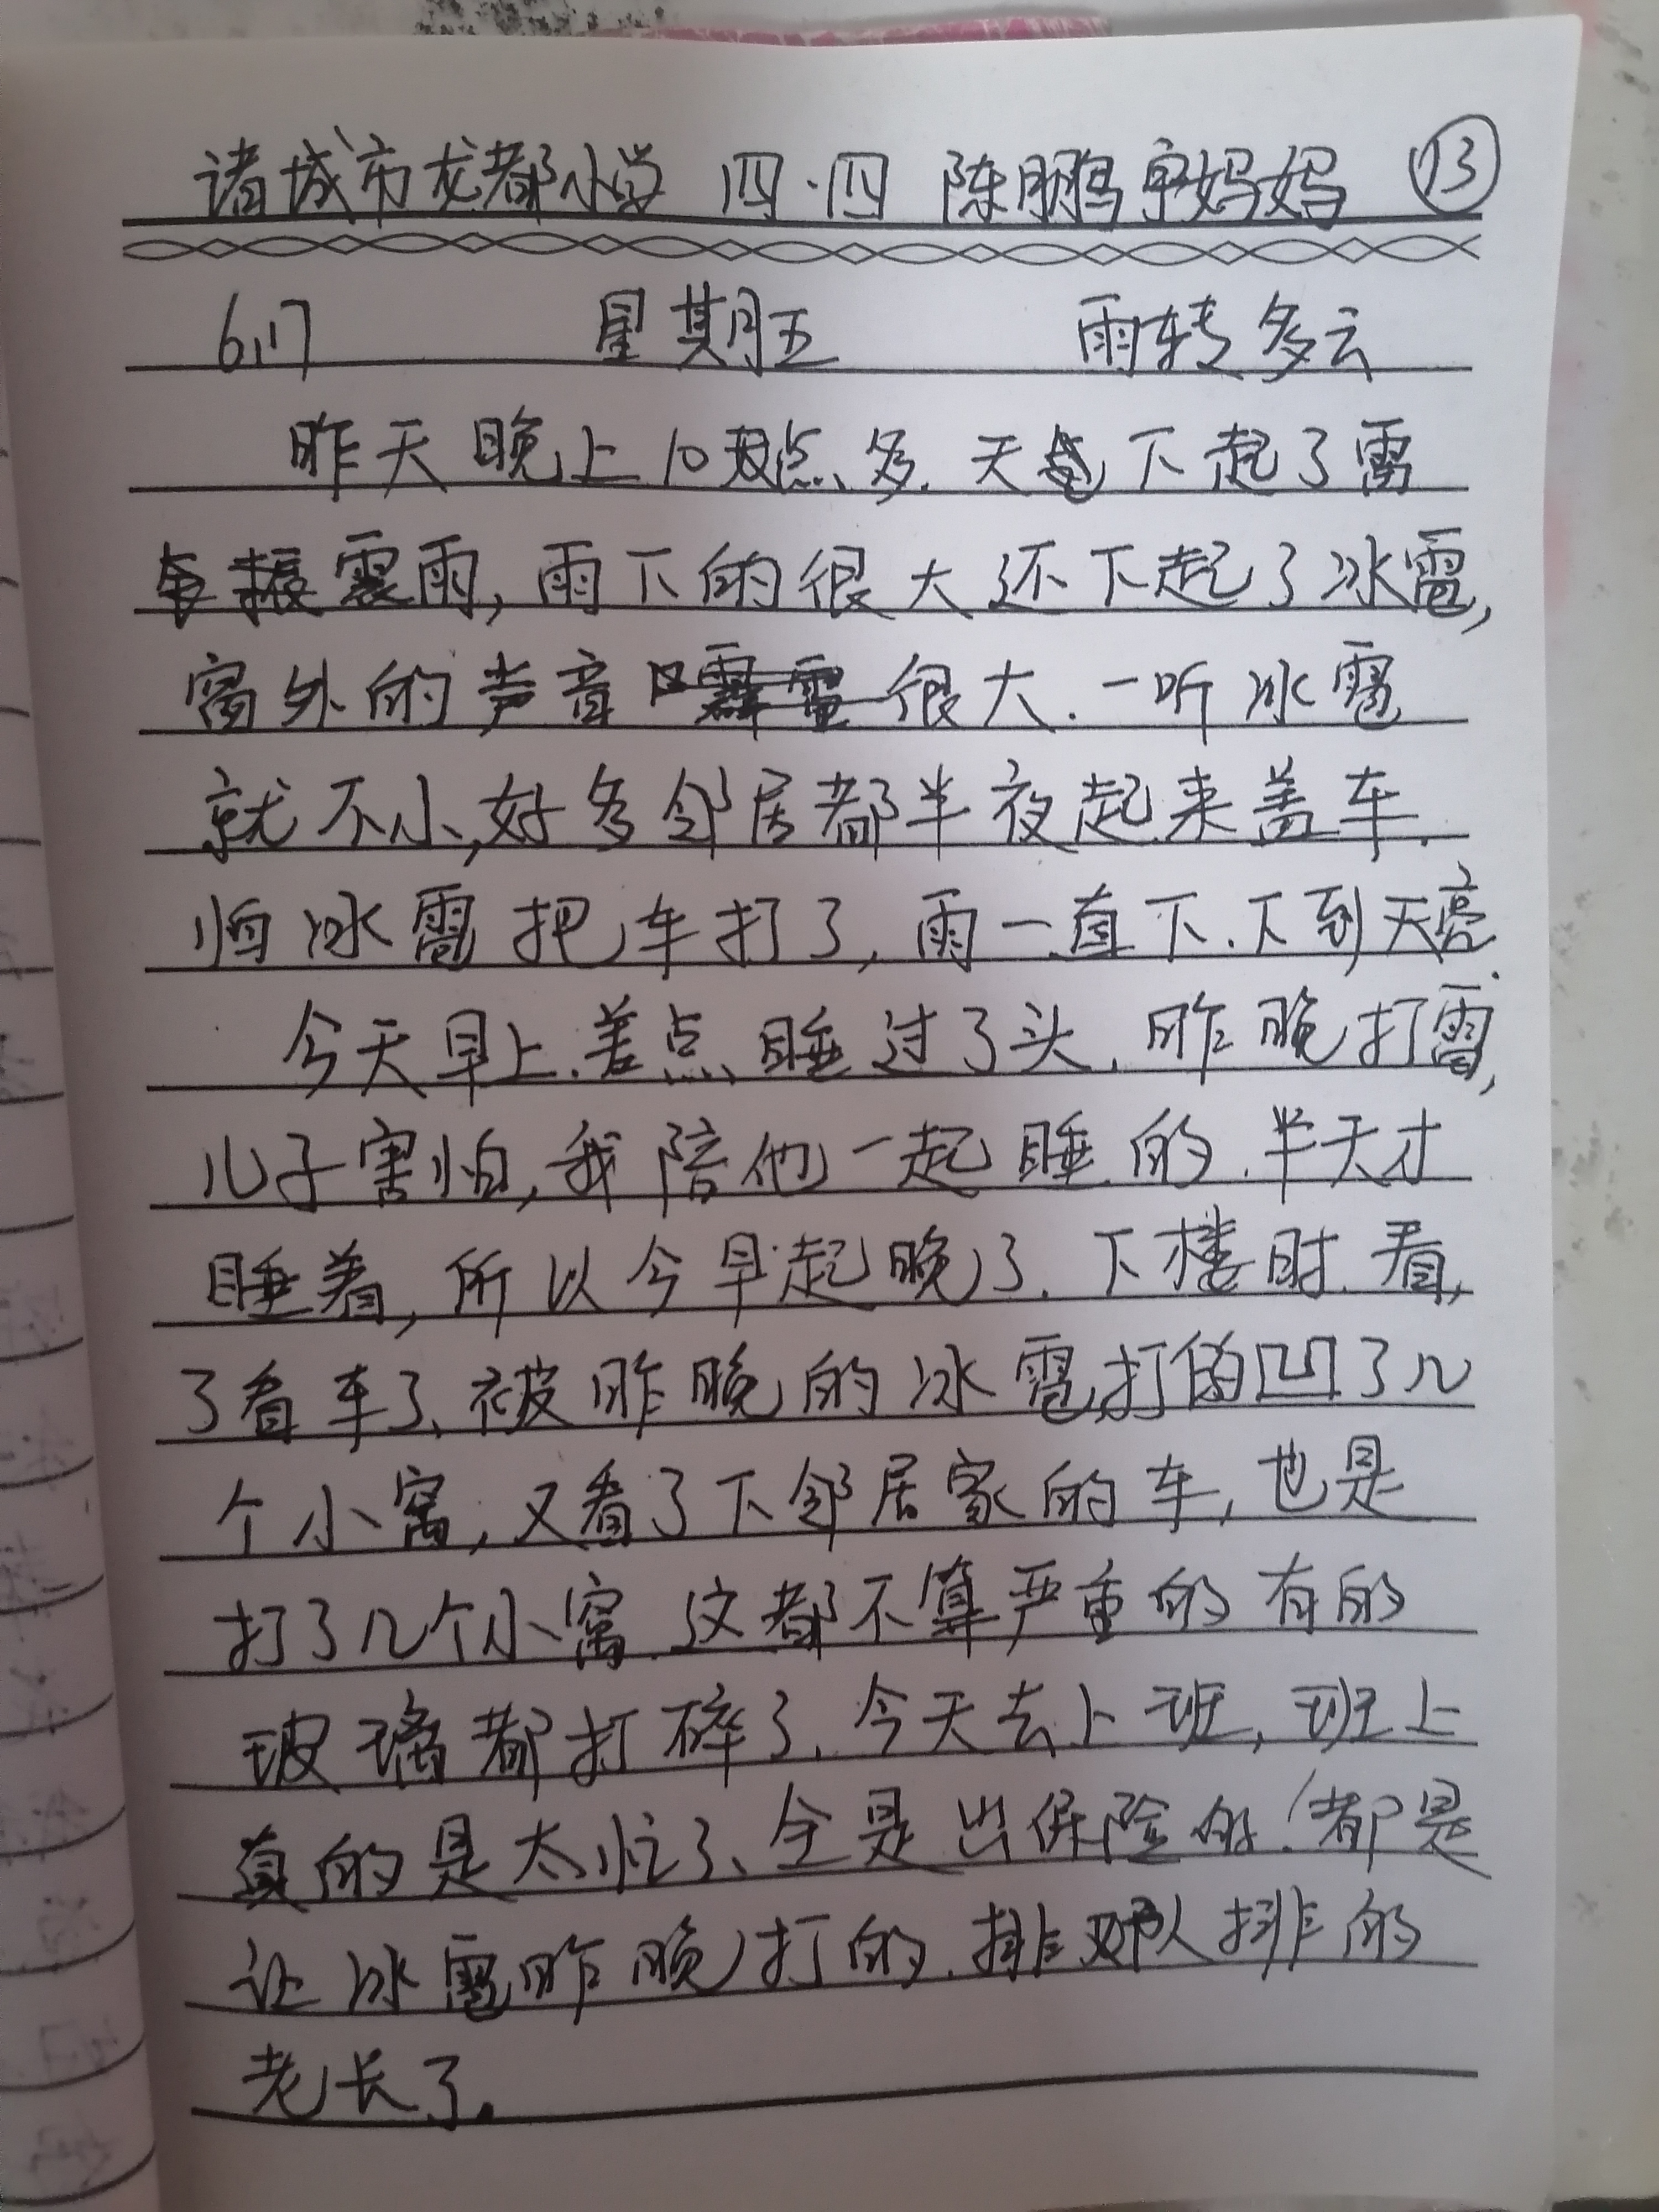 诸城市龙都小学 四·四 陈鹏宇妈妈 ⑬
6.17 星期五 雨转多云
昨天晚上10点多.天下起了雷
震雨,雨下的很大还下起了冰雹,
窗外的声音很大.一听冰雹
就不小,好多邻居都半夜起来盖车.
怕冰雹把车打了,雨一直下.下到天亮.
今天早上.差点睡过了头.昨晚打雷,
儿子害怕,我陪他一起睡的.半天才
睡着,所以今早起晚了.下楼时.看,
了看车了、被昨晚的冰雹打的凹了几
个小窝,又看了下邻居家的车,也是
打了几个小窝.这都不算严重的有的
玻璃都打碎了.今天去上班,班上
真的是太忙了、全是出保险的!都是
让冰雹昨晚打的.排队排的
老长了.